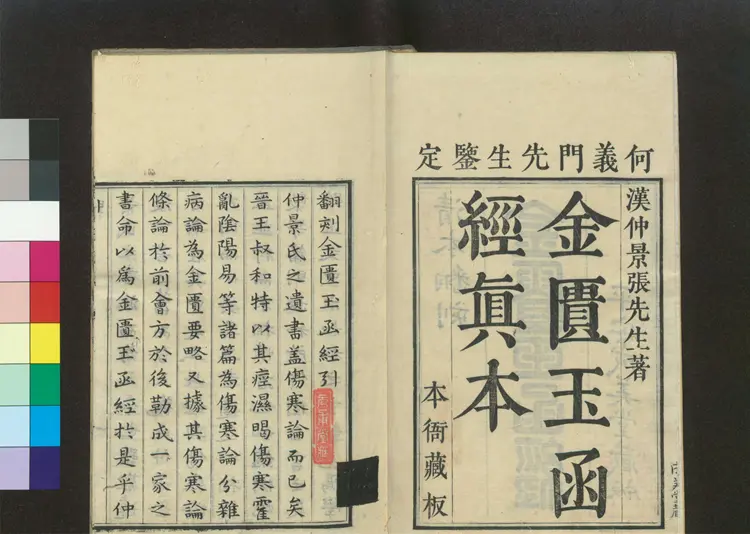 何義門先生鑒定
漢仲景張先生著
金匱玉函
經眞本
本衙藏板
翻刻金匱玉函經引
仲景氏之遺書盖傷寒論而已矣
晉王叔和特以其痙濕暍傷寒霍
亂陰陽易等諸篇為傷寒論分雜
病論為金匱要略又據其傷寒論
條論於前會方於後勒成一家之
書命以爲金匱玉函經於是乎仲